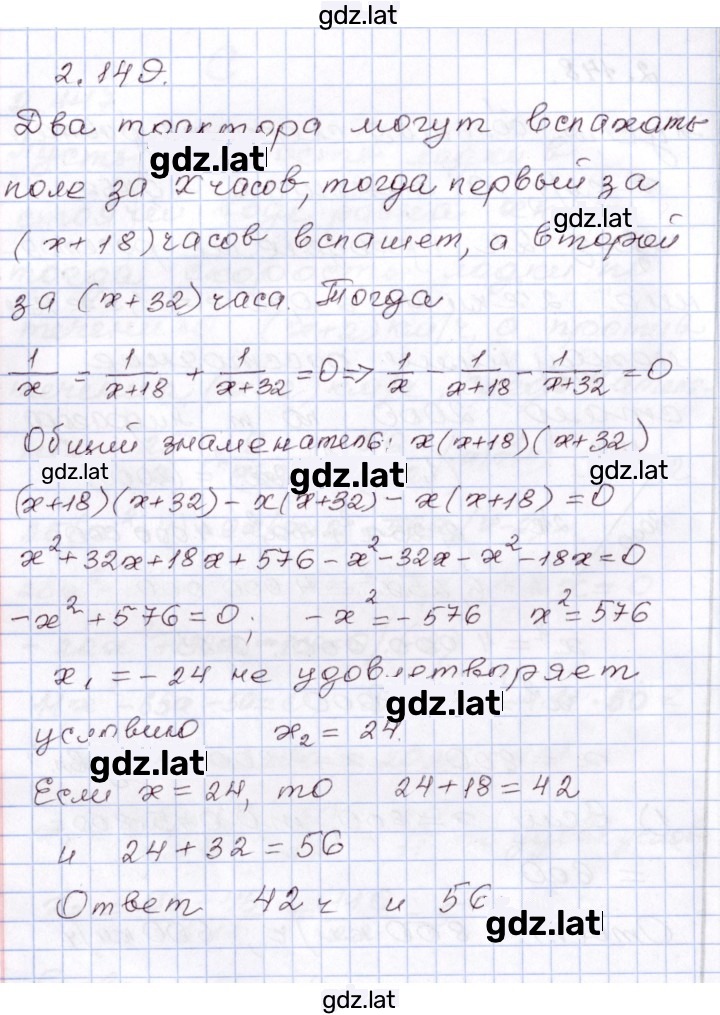 gdz.lat
2.149.
Два трактора могут вспахать
gdz.lat
поле за x часов, тогда первый за
gdz.lat
(x+18) часов вспашет, а второй
за (x+32) часа. Тогда
1/x = 1/(x+18) + 1/(x+32) = 0 => 1/x - 1/(x+18) - 1/(x+32) = 0
Общий знаменатель: x(x+18)(x+32)
gdz.lat gdz.lat gdz.lat
(x+18)(x+32) - x(x+32) - x(x+18) = 0
x²+32x+18x+576-x²-32x-x²-18x=0
-x²+576=0; -x²=-576 x²=576
x₁ = -24 не удовлетворяет
gdz.lat
условию x₂ = 24.
gdz.lat
Если x=24, то 24+18=42
и 24+32=56
Ответ 42 ч и 56
gdz.lat
gdz.lat